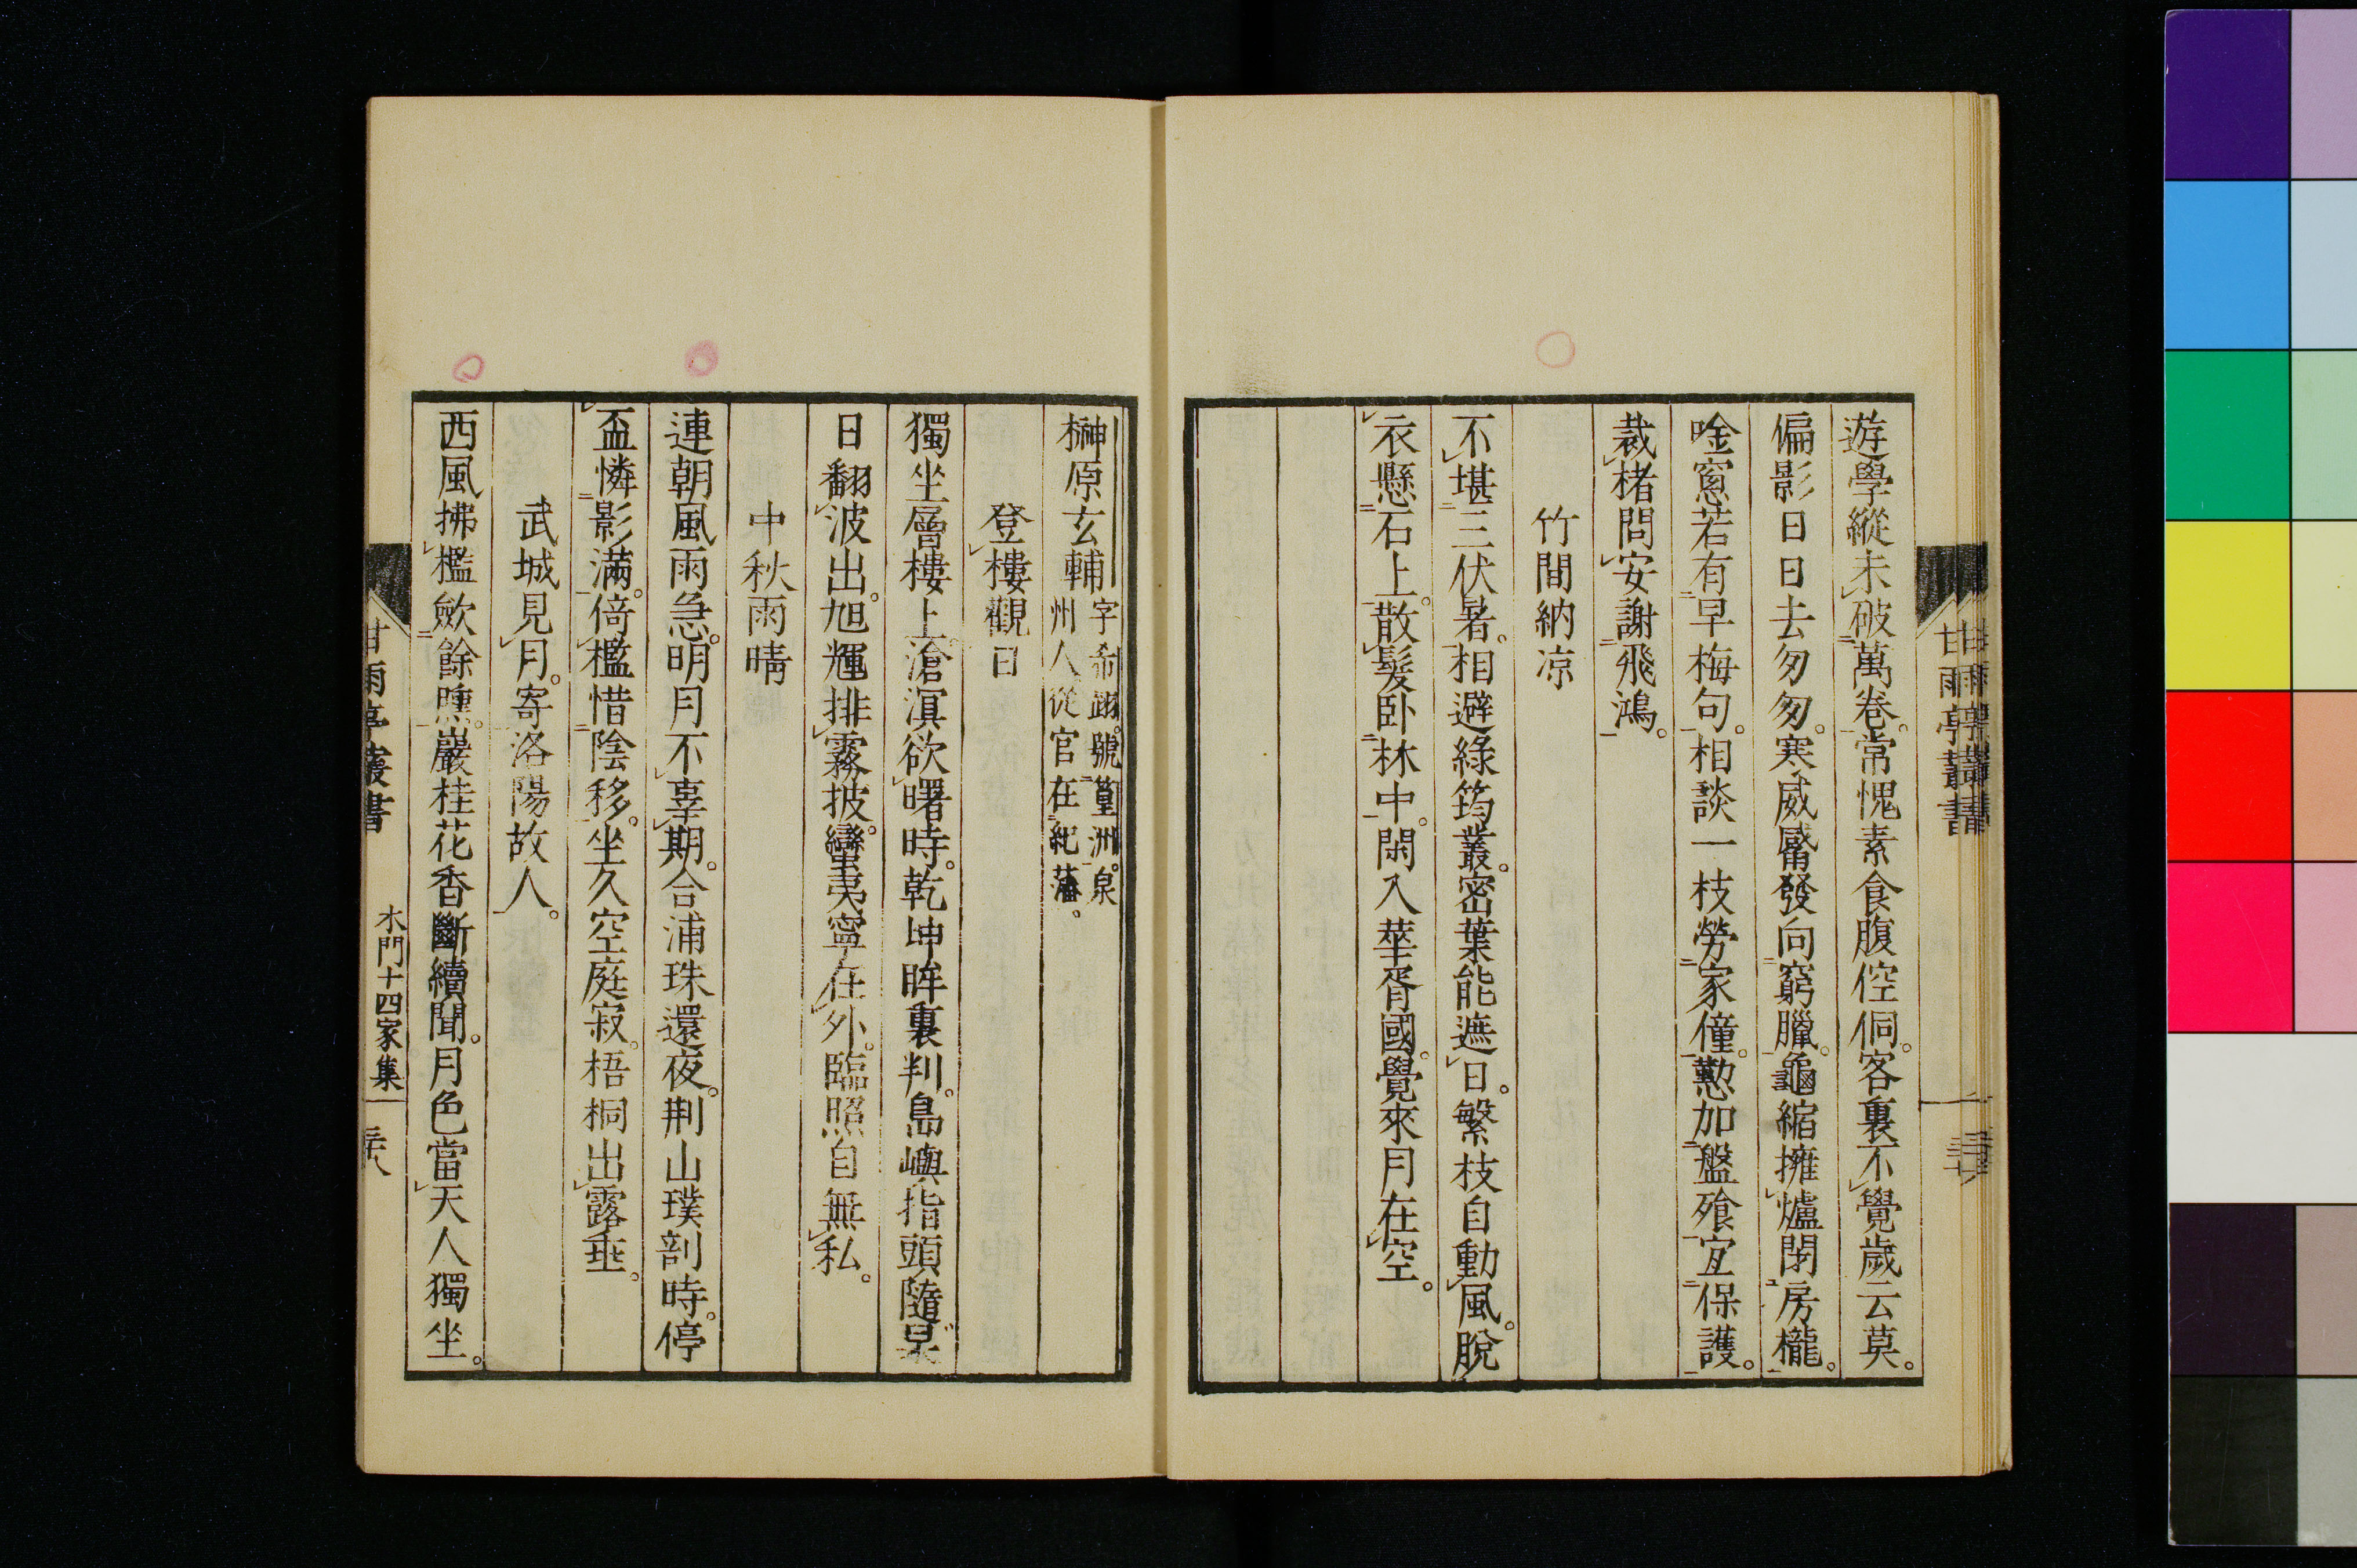 遊學縱未破萬卷。常愧素食腹倥侗。客裏不覺歲云莫。
偏影日日去匆匆。寒威觱發向窮臘。龜縮擁爐閉房櫳。
唫窓若有早梅句。相談一枝勞家僮。懃加盤飧宜保護。
裁楮問安謝飛鴻。
竹間納凉
不堪三伏暑。相避綠筠叢。密葉能遮日。繁枝自動風。脫
衣懸石上。散髮臥林中。閑入華胥國。覺來月在空。
甘雨亭叢書
榊原玄輔
字希翊。號篁洲。泉
州人。從官在紀藩。
登樓觀日
獨坐層樓上。滄溟欲曙時。乾坤眸裏判。島嶼指頭隨。杲
日翻波出。旭輝排霧披。蠻夷寧在外。臨照自無私。
中秋雨晴
連朝風雨急。明月不辜期。合浦珠還夜。荆山璞剖時。停
盃憐影滿。倚檻惜陰移。坐久空庭寂。梧桐出露垂。
武城見月。寄洛陽故人。
西風拂檻歛餘曛。巖桂花香斷續聞。月色當天人獨坐。
甘雨亭叢書
木門十四家集